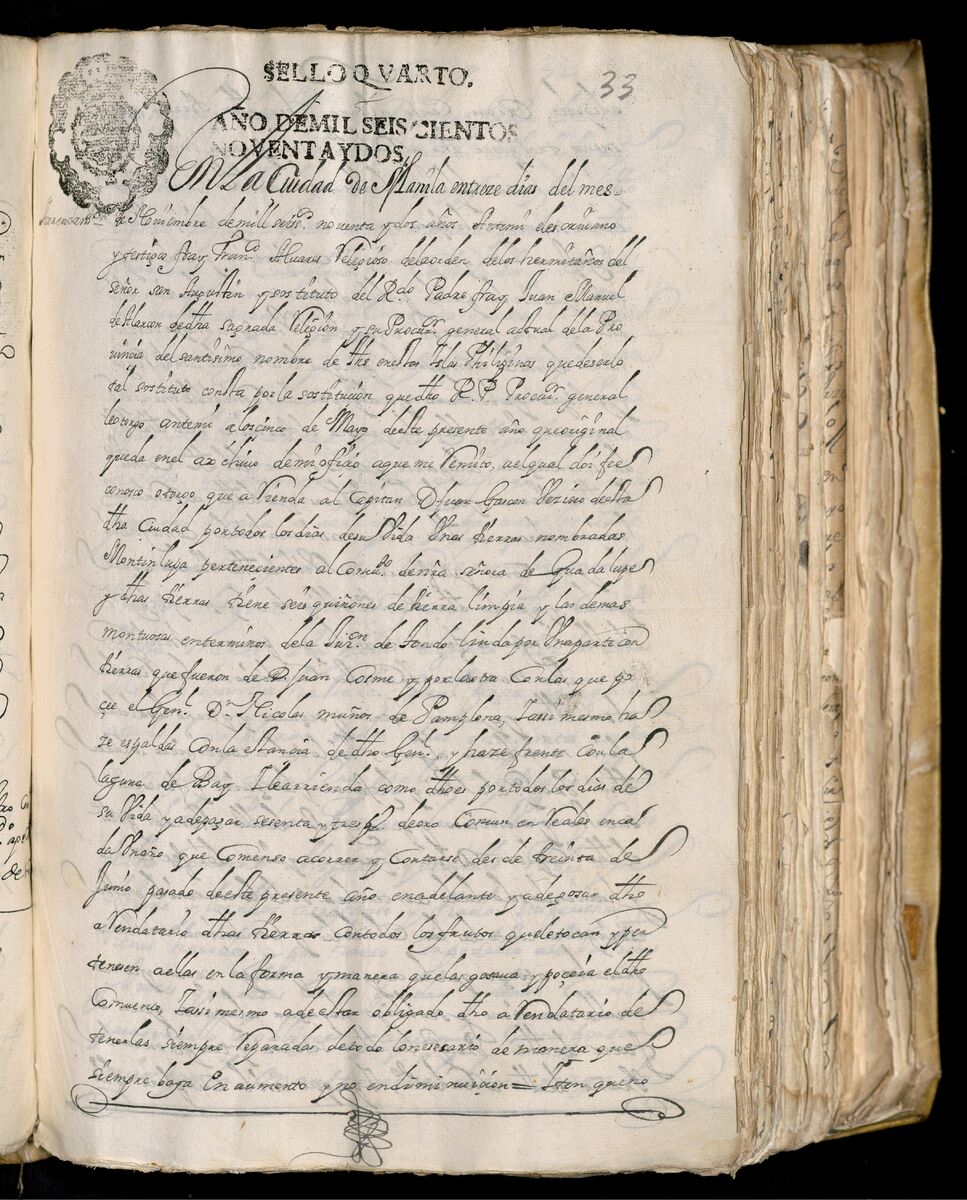 SELLO QVARTO,
33
AÑO DEMIL SEISCIENTOS
NOVENTAYDOS,
En La Ciudad de Manila entreze dias del mes
de Nouiembre demill seisos. nouenta ydos años Antemi elescriuano
y testigos fray Franco. Aluares Religioso delaorden delos hermitaños del
señor san Augustin y sostituto del Rdo Padre fray Iuan Manuel
de Alarcon dedha sagrada Religion y su Procur. general actual dela Pro
uincia del santissimo nombre de Jhs enestas Islas Philipinas quedeserlo
tal sostituto consta porla sostitucion quedho R. P. Procur. general
leotorgo antemi aloscinco de Mayo deeste presente año queoriginal
queda enel archiuo demiofiçio aqueme Remito, aelqual doi fee
conosco otorgo que aRienda al Capitan D. Juan Gascon Vezino deesta
dha Ciudad portodos losdias desu Vida Vnas tierras nombradas
Montinlupa pertenecientes al Conuto. denra señora de Guadalupe
y dhas tierras tiene seis quiñones de tierra limpia y las demas
montuosas enterminos dela Juron. de tondo linda por Vnaparte con
tierras que fueron de D. Juan Cosme y porlaotra Conlas que po
çee el Genl. Dn. Nicolas muños de Pamplona, Iassimesmo ha
ze espaldas Conla estancia de dho Genl. y haze frente conla
laguna de Bay Ilearrienda como dhoes portodos los dias de
su Vida y adepagar sesenta y tres ps. deoro Comun en Reales encal
da Vnaño que Comenso acorrer y Contarse des de treinta de
Junio pasado deeste presente año enadelante y adegosar dho
aRendatario dhas tierras Contodos los frutos queletocan y per
tenesen aellas en la forma y manera quelas gosaua y poçeia eldho
Comuento, Iassimesmo adeestar obligado dho aRendatario de
tenerlas siempre Reparadas detodo lonesesario demanera que
siempre baya En aumento y no endiminuicion = Iten queno